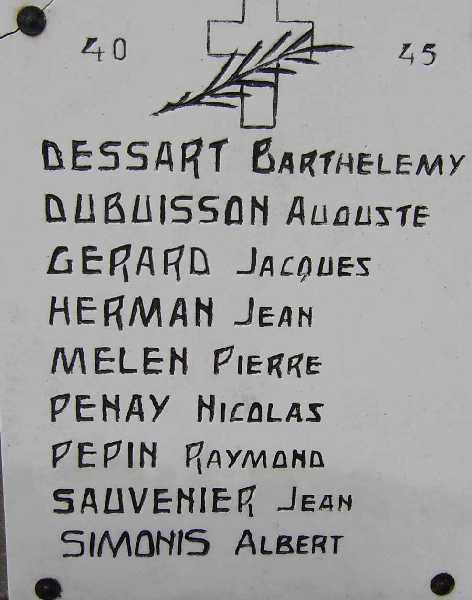 40 45
DESSART BARTHELEMY
DUBUISSON AUGUSTE
GERARD JACQUES
HERMAN JEAN
MELEN PIERRE
PENAY NICOLAS
PEPIN RAYMOND
SAUVENIER JEAN
SIMONIS ALBERT